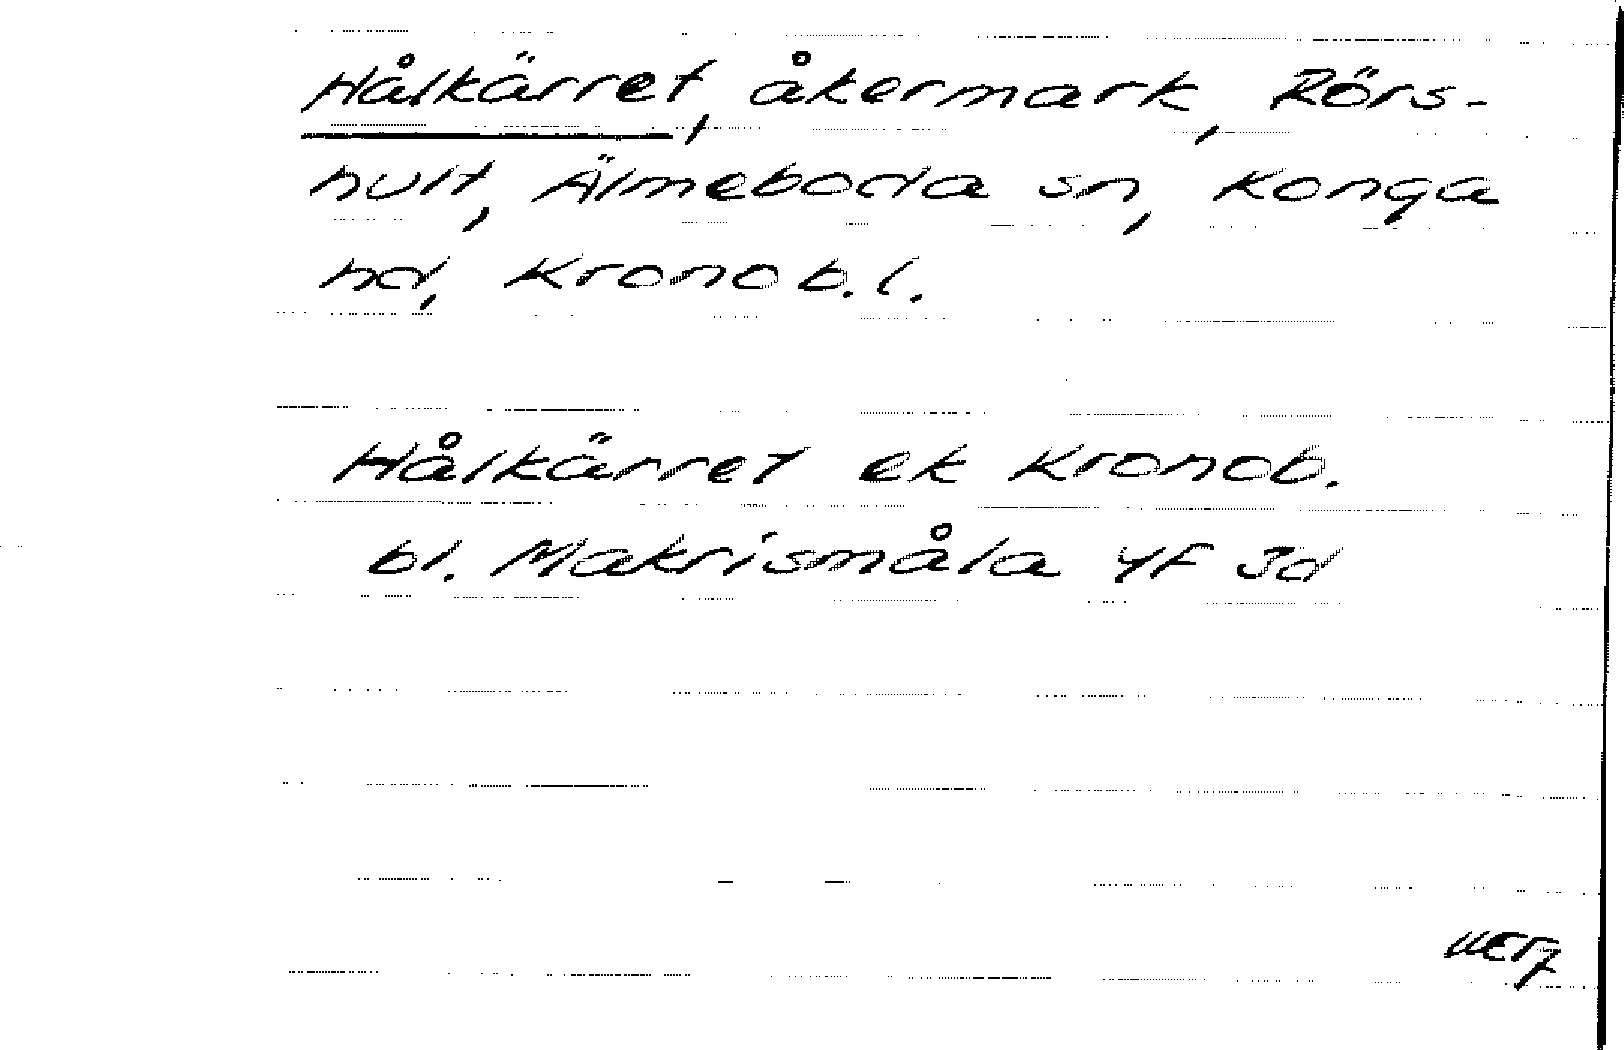 Hålkärret, åkermark, Rörs-
hult, Älmeboda sn, Konga
hd, Kronob. l.
Hålkärret ek Kronob.
bl. Makrismåla 4F 3d